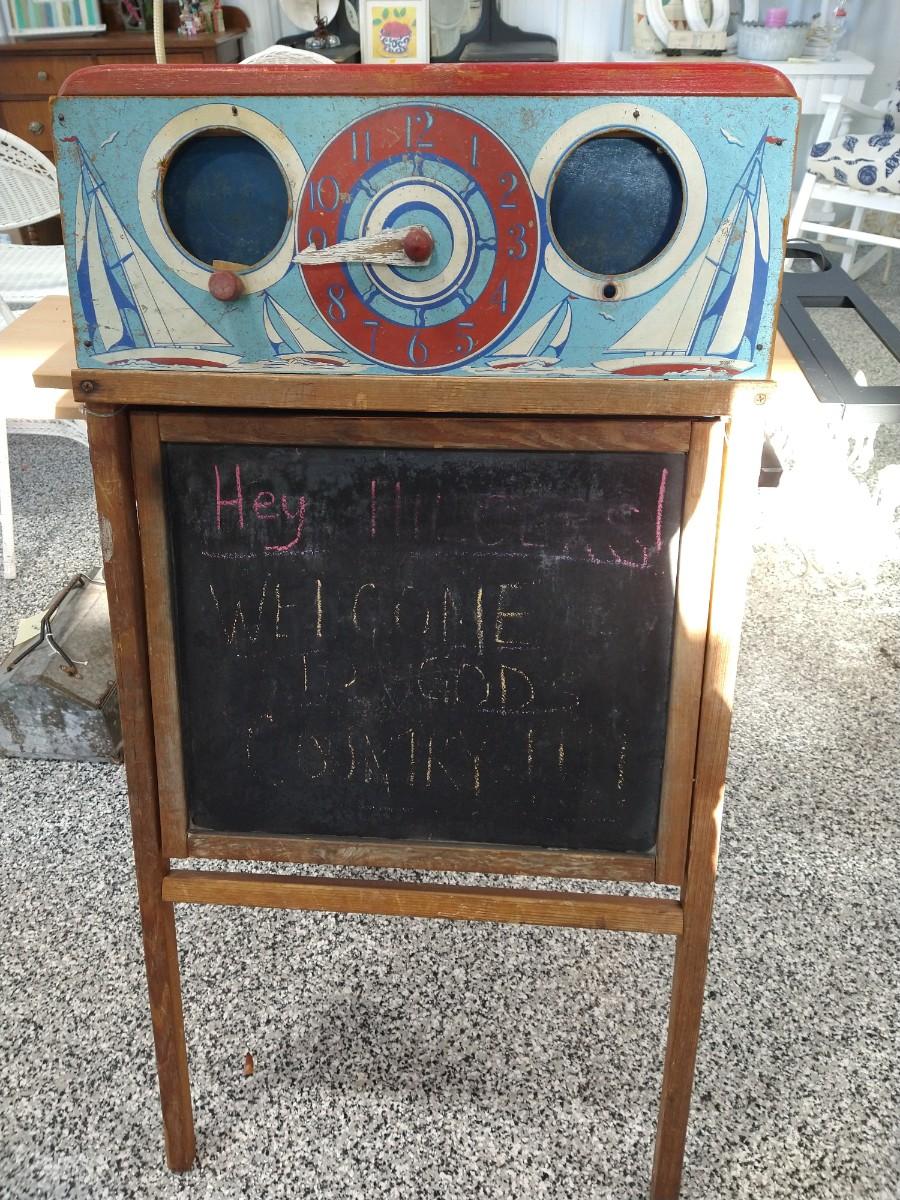 12
11 1
10 2
9 3
8 4
7 5
6
Hey
WELCOME
GODS
COUNTRY !!!